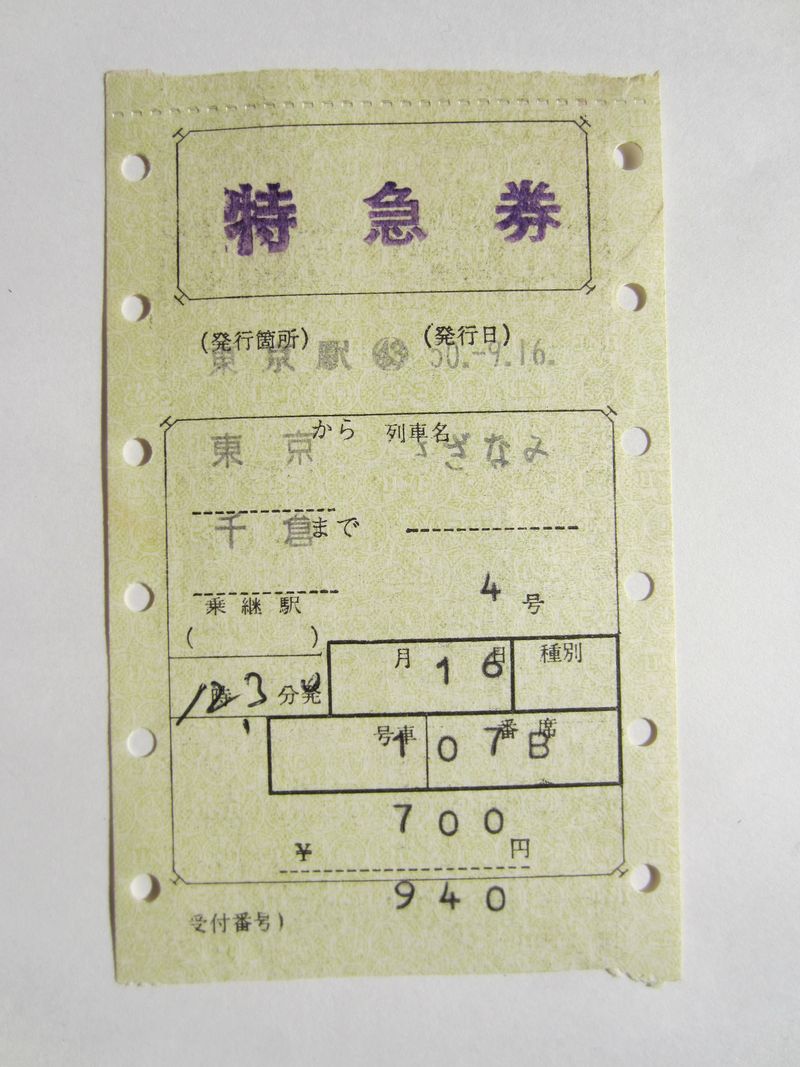 特急券
(発行箇所) (発行日)
東京駅 50.-9.16.
東京から 列車名 さざなみ
千倉まで
4号
乗継駅
( )
月 16日 種別
時 分発
号車 番席
1 07 B
700
¥ 円
940
受付番号)